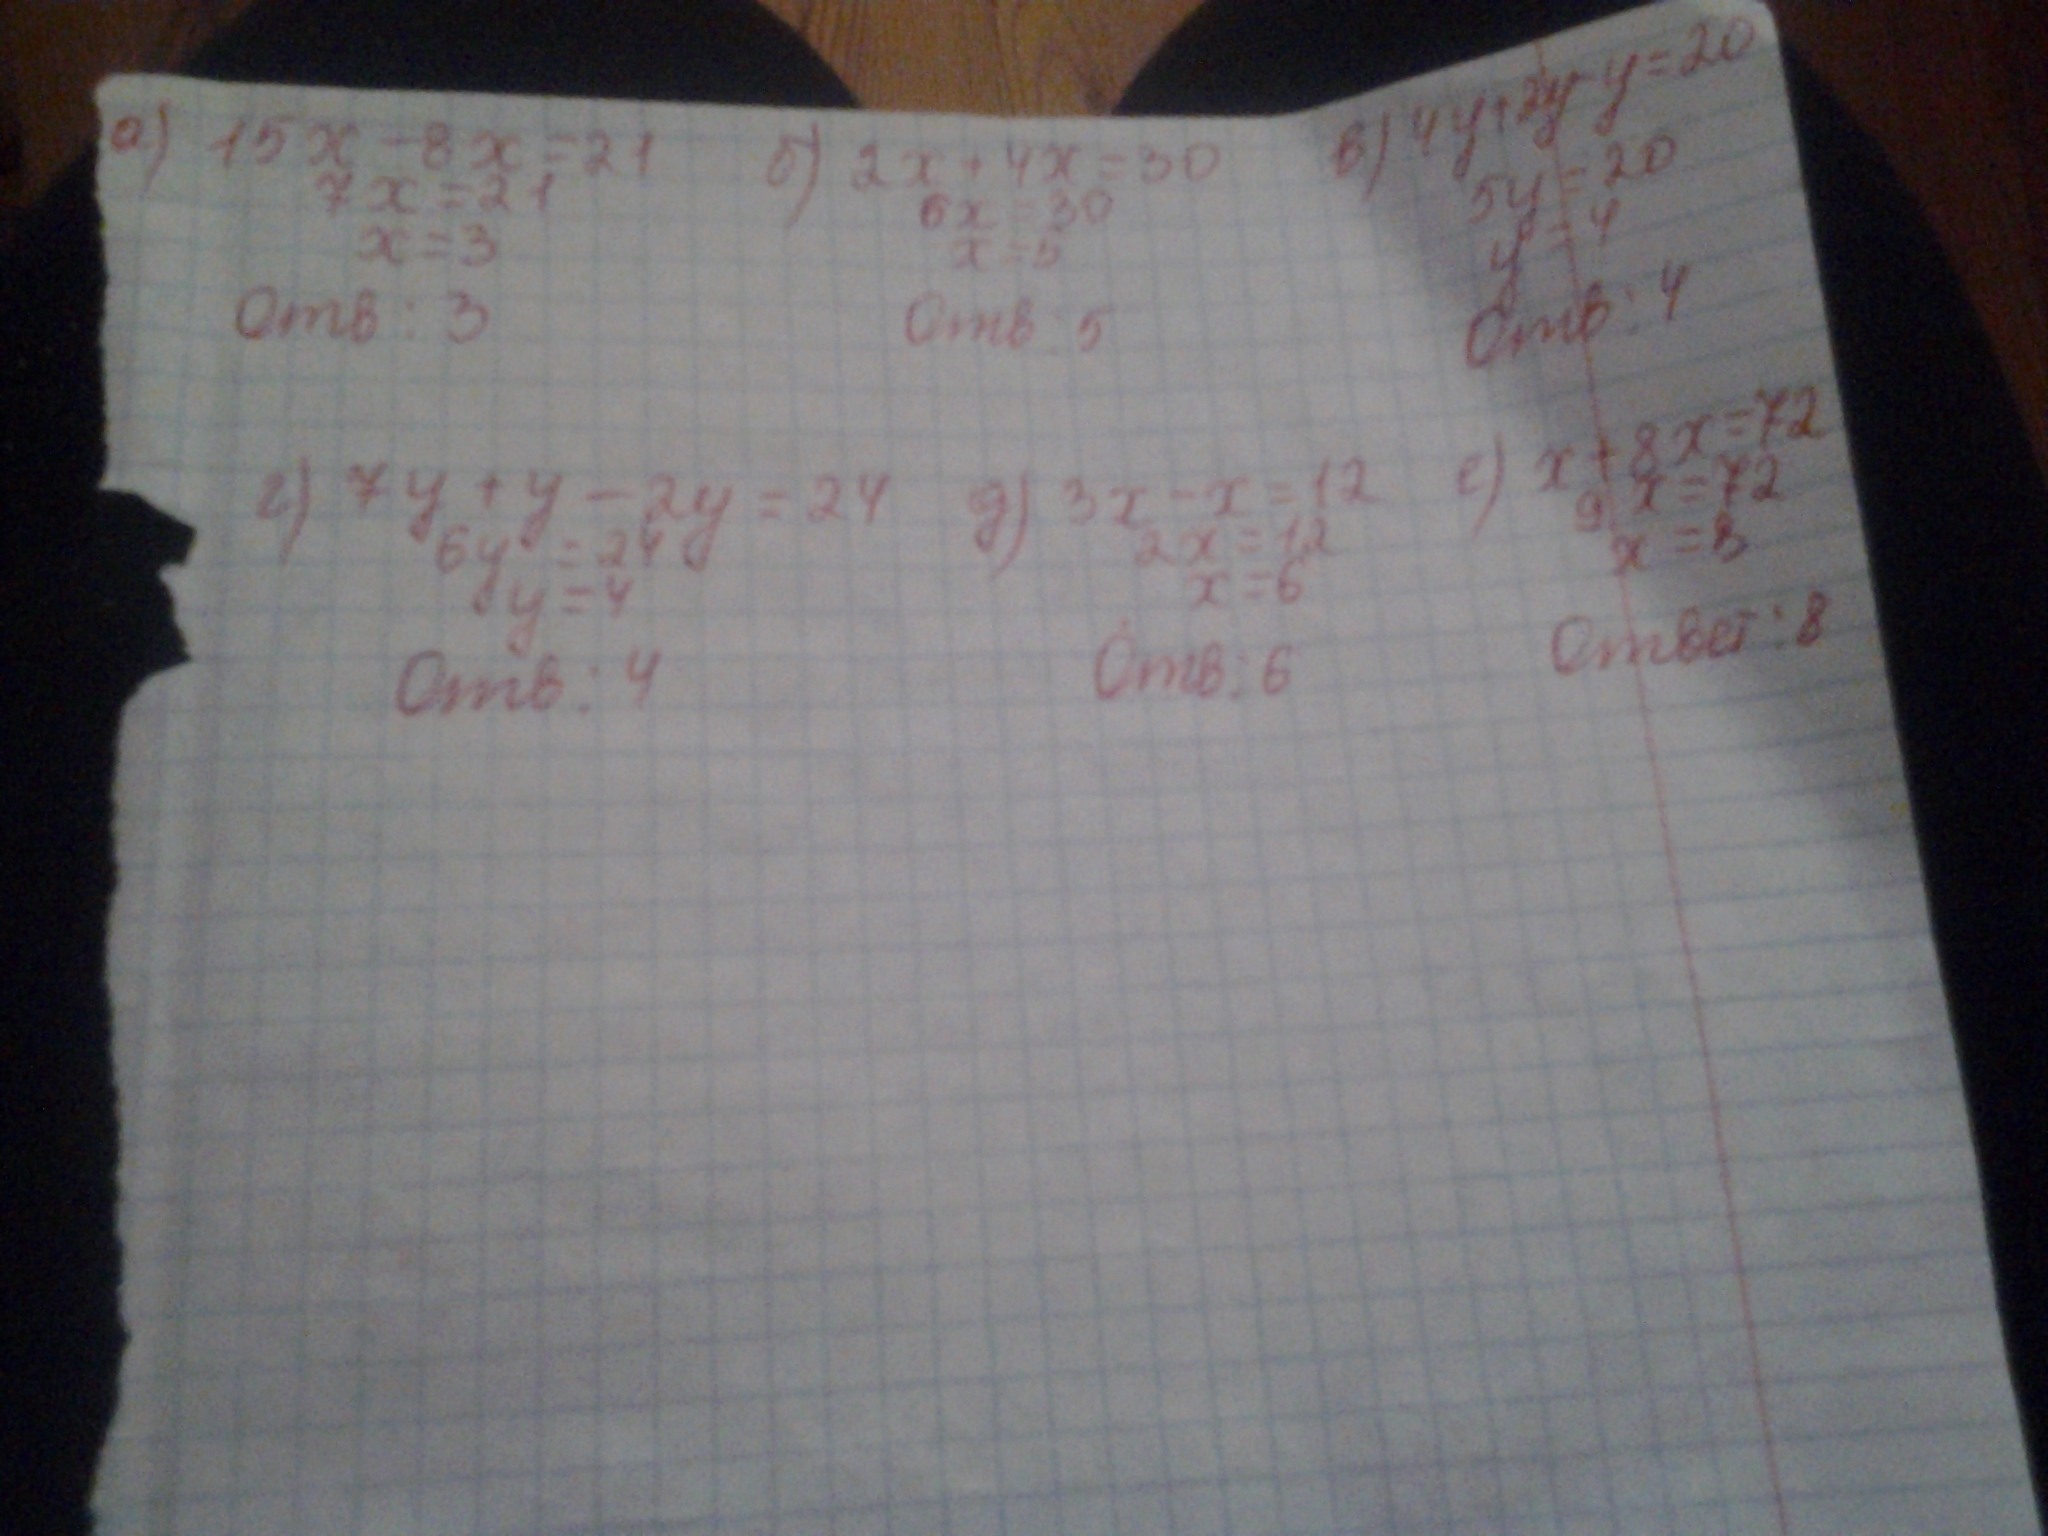 а) 15x-8x=21
7x=21
x=3
Отв: 3
б) 2x+4x=30
6x=30
x=5
Отв: 5
в) 4y+2y-y=20
5y=20
y=4
Отв: 4
г) 7y+y-2y=24
6y=24
y=4
Отв: 4
д) 3x-x=12
2x=12
x=6
Отв: 6
е) x+8x=72
9x=72
x=8
Ответ: 8